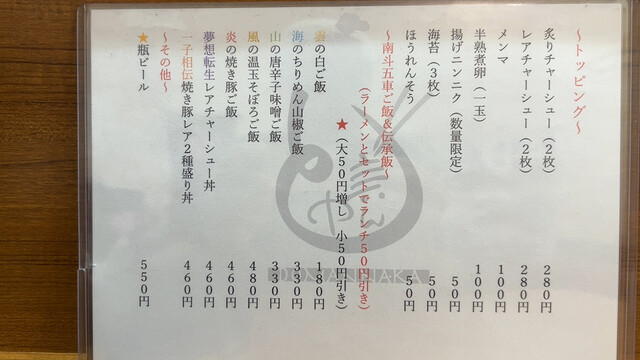 ～トッピング～
炙りチャーシュー（２枚） ２８０円
レアチャーシュー（２枚） ２８０円
メンマ １００円
半熟煮卵（一玉） １００円
揚げニンニク（数量限定） ５０円
海苔（３枚） ５０円
ほうれんそう ５０円
～南斗五車ご飯＆伝承飯～
（ラーメンとセットでランチ５０円引き）
★（大５０円増し 小５０円引き）
雲の白ご飯 １８０円
海のちりめん山椒ご飯 ３３０円
山の唐辛子味噌ご飯 ３３０円
風の温玉そぼろご飯 ４８０円
炎の焼き豚ご飯 ４６０円
夢想転生レアチャーシュー丼 ４６０円
一子相伝焼き豚レア２種盛り丼 ４６０円
～その他～
★瓶ビール ５５０円